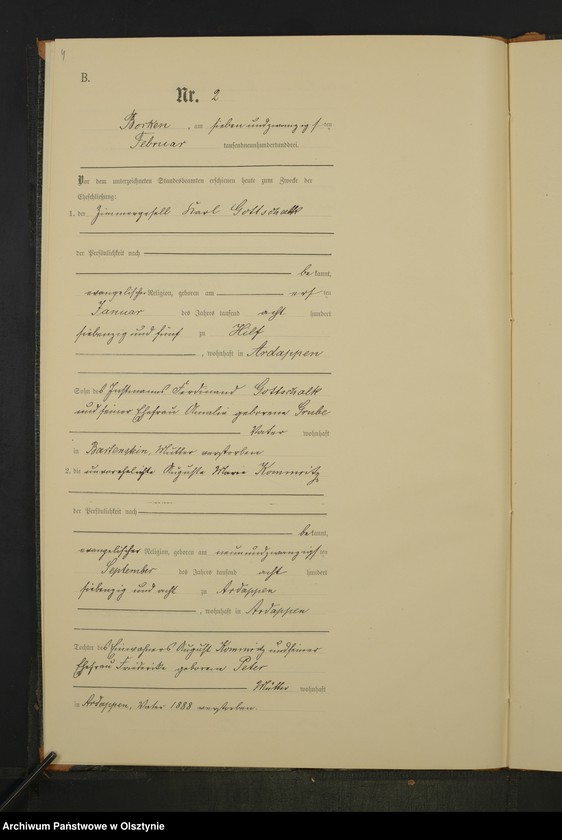 4
B.
Nr. 2
Borken, am siebenundzwanzigsten
Februar tausendneunhundertunddrei.
Vor dem unterzeichneten Standesbeamten erschienen heute zum Zwecke der
Eheschließung:
1. der Zimmergesell Karl Gottschalk
der Persönlichkeit nach
bekannt,
evangelischer Religion, geboren am ersten
Januar des Jahres tausend acht hundert
siebenzig und fünf zu Hilf
, wohnhaft in Ardappen
Sohn des Instmanns Ferdinand Gottschalk
und seiner Ehefrau Amalie geborene Grube
Vater wohnhaft
in Bartenstein, Mutter verstorben
2. die unverehelichte Auguste Marie Kommritz
der Persönlichkeit nach
bekannt,
evangelischer Religion, geboren am neunundzwanzigsten
September des Jahres tausend acht hundert
siebenzig und acht zu Ardappen
, wohnhaft in Ardappen
Tochter des Einwohners August Kommritz und seiner
Ehefrau Friderike geborene Peter
Mutter wohnhaft
in Ardappen, Vater 1888 verstorben.
Archiwum Państwowe w Olsztynie